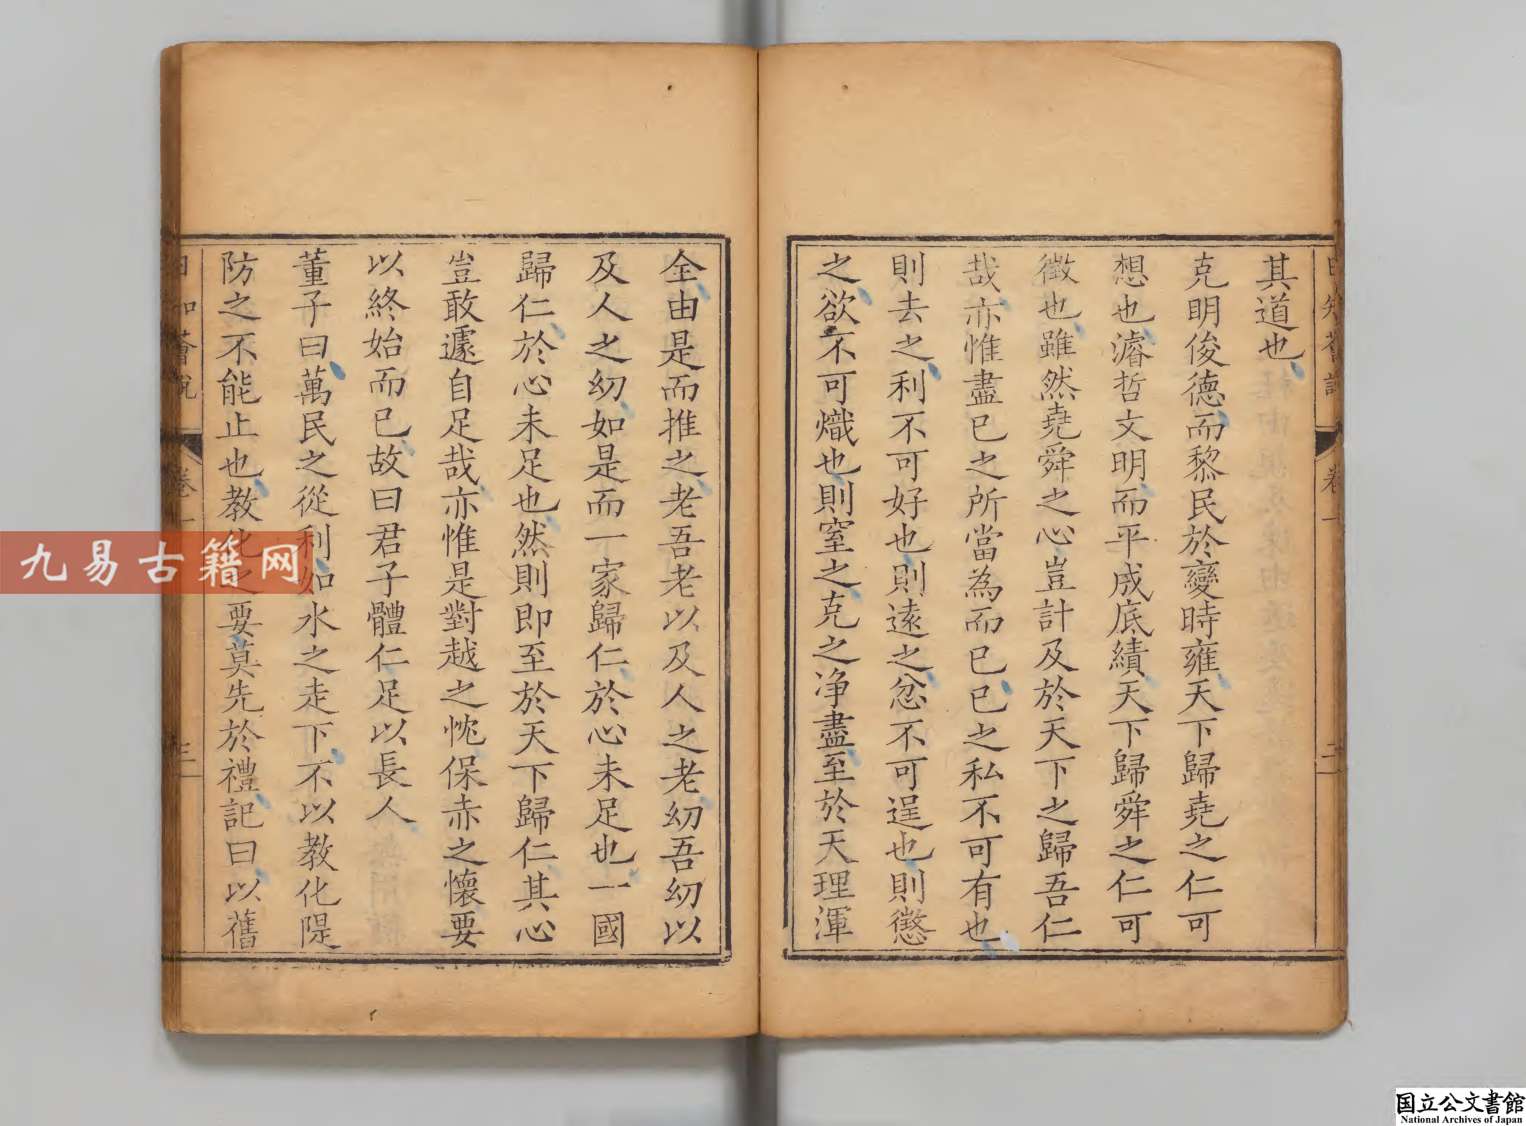 其道也
克明俊德而黎民於變時雍天下歸堯之仁可
想也濬哲文明而平成底績天下歸舜之仁可
徵也雖然堯舜之心豈計及於天下之歸吾仁
哉亦惟盡已之所當為而已已之私不可有也
則去之利不可好也則遠之忿不可逞也則懲
之欲不可熾也則窒之克之净盡至於天理渾
全由是而推之老吾老以及人之老幼吾幼以
及人之幼如是而一家歸仁於心未足也一國
歸仁於心未足也然則即至於天下歸仁其心
豈敢遽自足哉亦惟是對越之忱保赤之懷要
以終始而已故曰君子體仁足以長人
董子曰萬民之從利如水之走下不以教化隄
防之不能止也教化之要莫先於禮記曰以舊
日知薈說 卷一 二
日知薈說 卷一 三
九易古籍网
国立公文書館
National Archives of Japan